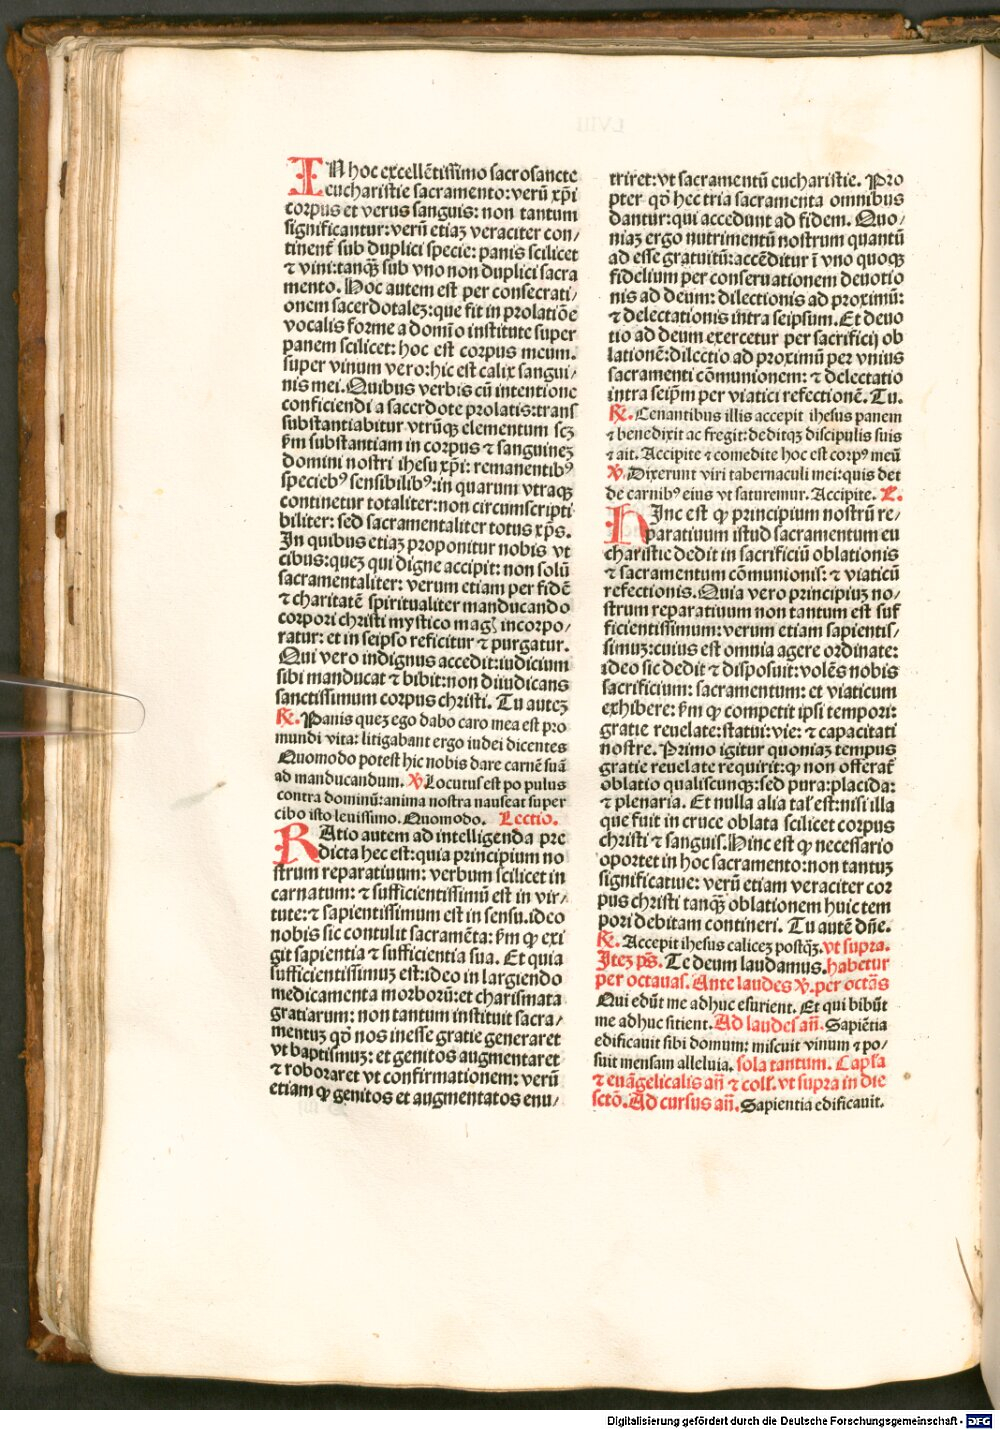 IN hoc excellẽtissimo sacrosancte
eucharistie sacramento: verũ xp̃i
corpus et verus sanguis: non tantum
significantur: verũ etiaz veraciter con/
tinent̃ sub duplici specie: panis scilicet
⁊ vini: tanqȝ sub vno non duplici sacra
mento. Hoc autem est per consecrati/
onem sacerdotalez: que fit in prolatiõe
vocalis forme a domĩo institute super
panem scilicet: hoc est corpus meum.
super vinum vero: hic est calix sangui/
nis mei. Quibus verbis cũ intentione
conficiendi a sacerdote prolatis: trans
substantiabitur vtrũqȝ elementum scȝ
ẜm substantiam in corpus ⁊ sanguinez
domini nostri ihesu xp̃i: remanentibꝰ
speciebꝰ sensibilibꝰ: in quarum vtraqȝ
continetur totaliter: non circumscripti
biliter: sed sacramentaliter totus xp̃s.
In quibus etiaz proponitur nobis vt
cibus: quez qui digne accipit: non solũ
sacramentaliter: verum etiam per fidẽ
⁊ charitatẽ spiritualiter manducando
corpori christi mystico magꝭ incorpo/
ratur: et in seipso reficitur ⁊ purgatur.
Qui vero indignus accedit: iudicium
sibi manducat ⁊ bibit: non diiudicans
sanctissimum corpus christi. Tu autez
R̃. Panis quez ego dabo caro mea est pro
mundi vita: litigabant ergo iudei dicentes
Quomodo potest hic nobis dare carnẽ suã
ad manducandum. V̾ Locutus est po pulus
contra dominũ: anima nostra nauseat super
cibo isto leuissimo. Quomodo. Lectio.
RAtio autem ad intelligenda pre
dicta hec est: quia principium no
strum reparatiuum: verbum scilicet in
carnatum: ⁊ sufficientissimũ est in vir/
tute: ⁊ sapientissimum est in sensu. ideo
nobis sic contulit sacramẽta: ẜm ꝙ exi
git sapientia ⁊ sufficientia sua. Et quia
sufficientissimuz est: ideo in largiendo
medicamenta morborũ: et charismata
gratiarum: non tantum instituit sacra/
mentuz qd̃ nos inesse gratie generaret
vt baptismuz: et genitos augmentaret
⁊ roboraret vt confirmationem: verũ
etiam ꝙ genitos et augmentatos enu/
triret: vt sacramentũ eucharistie. Pro
pter qd̃ hec tria sacramenta omnibus
dantur: qui accedunt ad fidem. Quo/
niaz ergo nutrimentũ nostrum quantũ
ad esse gratuitũ: accẽditur ĩ vno quoqȝ
fidelium per conseruationem deuotio
nis ad deum: dilectionis ad proximũ:
⁊ delectationis intra seipsum. Et deuo
tio ad deum exercetur per sacrificij ob
lationẽ: dilectio ad proximũ per vnius
sacramenti cõmunionem: ⁊ delectatio
intra seip̃m per viatici refectionẽ. Tu.
R̃. Cenantibus illis accepit ihesus panem
⁊ benedixit ac fregit: deditqȝ discipulis suis
⁊ ait. Accipite ⁊ comedite hoc est corpꝰ meũ
V̾. Dixerunt viri tabernaculi mei: quis det
de carnibꝰ eius vt saturemur. Accipite. L.
HInc est ꝙ principium nostrũ re/
paratiuum istud sacramentum eu
charistie dedit in sacrificiũ oblationis
⁊ sacramentum cõmunionis: ⁊ viaticũ
refectionis. Quia vero principiuz no/
strum reparatiuum non tantum est suf
ficientissimum: verum etiam sapientis/
simuz: cuius est omnia agere ordinate:
ideo sic dedit ⁊ disposuit: volẽs nobis
sacrificium: sacramentum: et viaticum
exhibere: ẜm ꝙ competit ipsi tempori:
gratie reuelate: statui: vie: ⁊ capacitati
nostre. Primo igitur quoniaz tempus
gratie reuelate requirit: ꝙ non offerat̃
oblatio qualiscunqȝ: sed pura: placida:
⁊ plenaria. Et nulla alia tal̃ est: nisi illa
que fuit in cruce oblata scilicet corpus
christi ⁊ sanguis. Hinc est ꝙ necessario
oportet in hoc sacramento: non tantuz
significatiue: verũ etiam veraciter cor
pus christi tanqȝ oblationem huic tem
pori debitam contineri. Tu autẽ dñe.
R̃. Accepit ihesus calicez postqȝ. vt supra.
Itez ps̃. Te deum laudamus. habetur
per octauas. Ante laudes V̾. per octãs
Qui edũt me adhuc esurient. Et qui bibũt
me adhuc sitient. Ad laudes añ. Sapiẽtia
edificauit sibi domum: miscuit vinum ⁊ po/
suit mensam alleluia. sola tantum. Capl̃a
⁊ euãgelicalis añ ⁊ coll̃. vt supra in die
sctõ. Ad cursus añ. Sapientia edificauit.
Digitalisierung gefördert durch die Deutsche Forschungsgemeinschaft - DFG